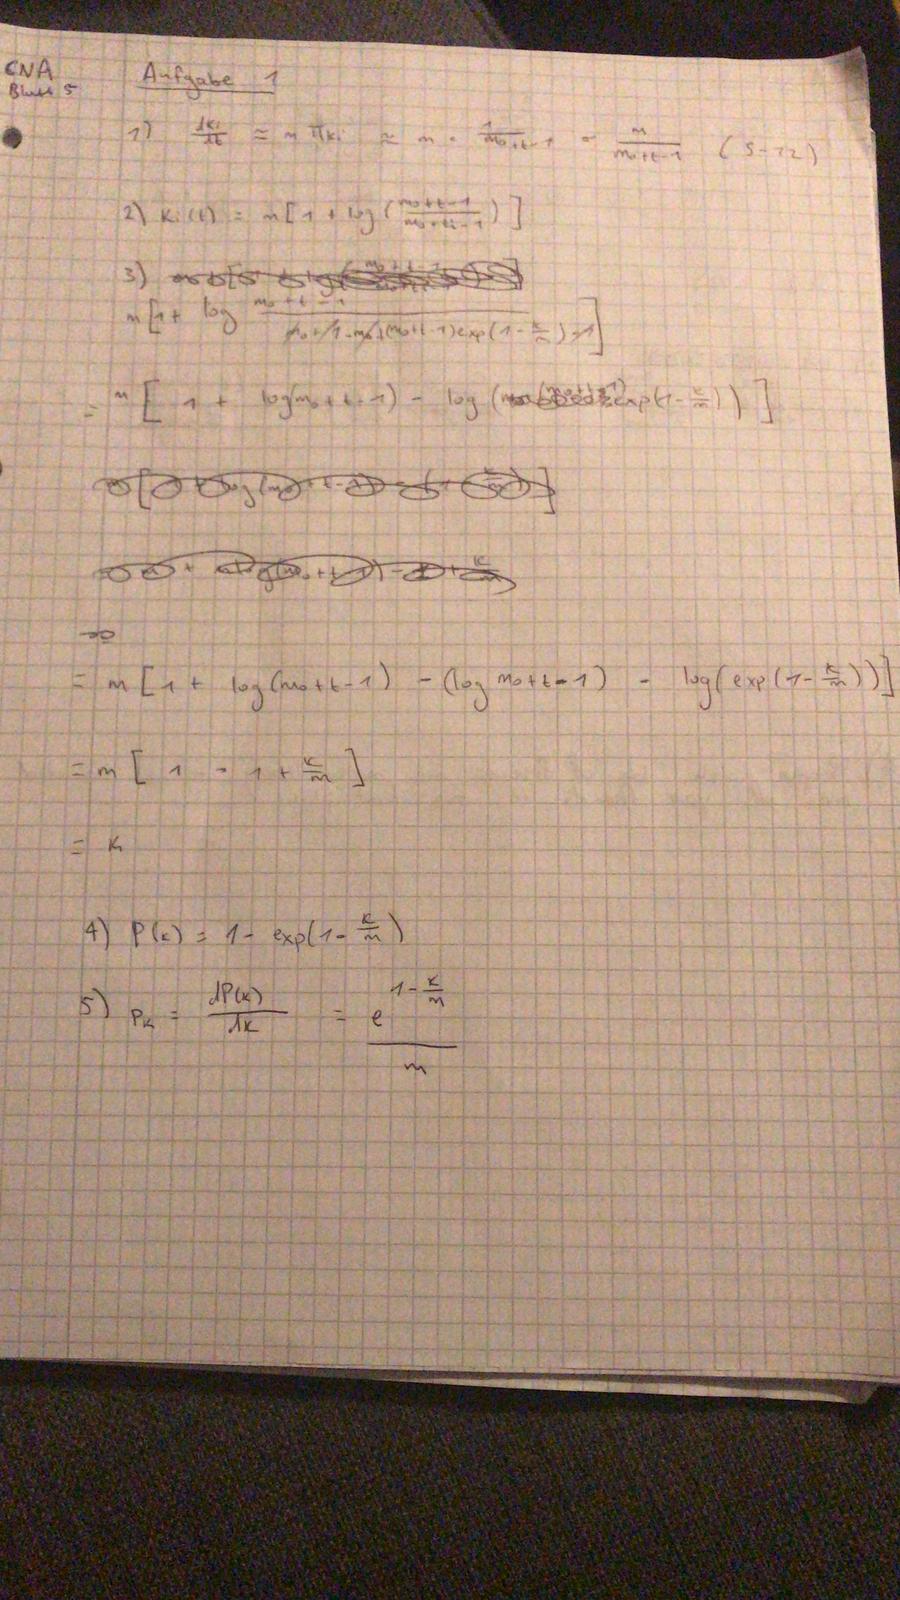 CNA
Blatt 5
Aufgabe 1
1) dki/dt ≈ m πki ≈ m · 1/(m₀+t-1) = m/(m₀+t-1) (5-12)
2) ki(t) = m[1 + log((m₀+t-1)/(m₀+ti-1))]
3)
m[1 + log (m₀+t-1)/(m₀+1-m₀+(m₀+t-1)exp(1-k/m)-1)]
= m[1 + log(m₀+t-1) - log((m₀+t-1)exp(1-k/m))]
= m[1 + log(m₀+t-1) - (log m₀+t-1) - log(exp(1-k/m))]
= m[1 - 1 + k/m]
= k
4) P(k) = 1 - exp(1-k/m)
5) pk = dP(k)/dk = e^(1-k/m)/m